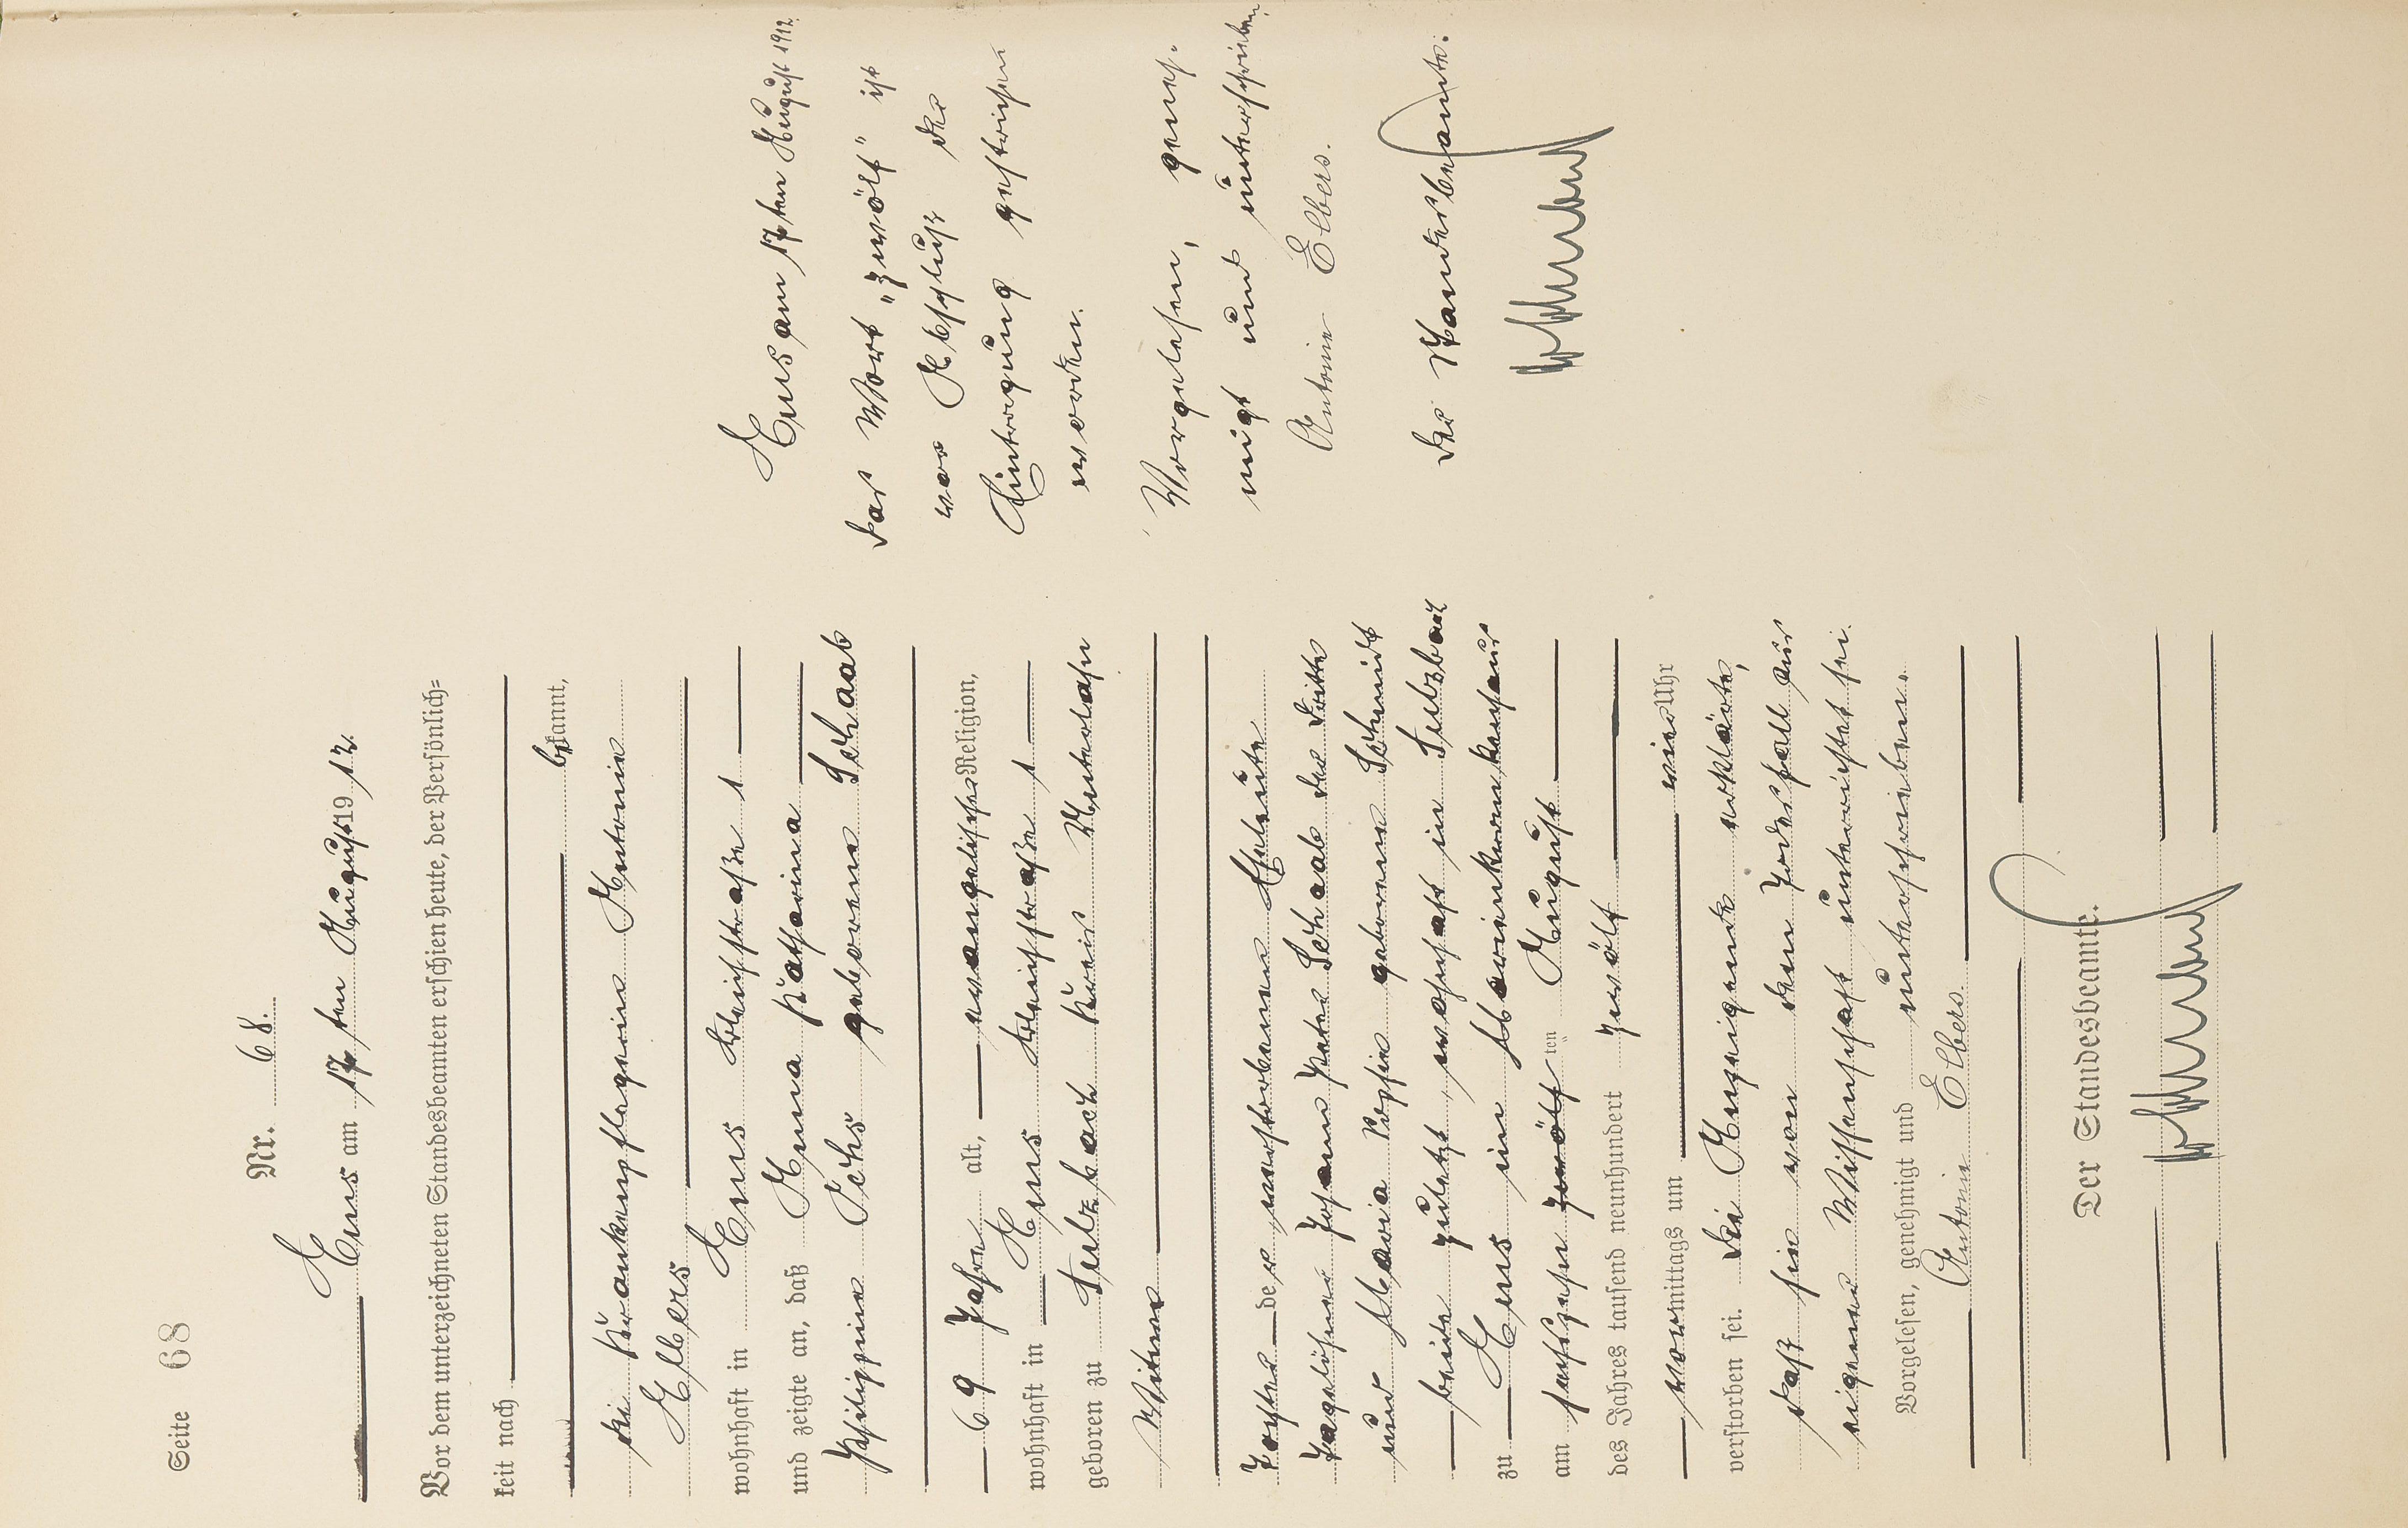 Seite 68
Nr. 68.
Ems am 17ten August 1912.
Vor dem unterzeichneten Standesbeamten erschien heute, der Persönlich=
keit nach
bekannt,
die Krankenpflegerin Antonie
Elbers
wohnhaft in Ems Bleichstraße 1
und zeigte an, daß Anna Katharina
Philippine Oehs geborene Schaab
69 Jahre alt, evangelischer Religion,
wohnhaft in Ems Bleichstraße 1
geboren zu Sulzbach Kreis Unterlahn
Witwe
Tochter der verstorbenen Eheleute
Tagelöhner Johann Peter Schaab der dritte
und Maria Sophie geborene Schmidt
beide zuletzt wohnhaft in Sulzbach
zu Ems im Marienkrankenhaus
am sechszehn zwölf ten August
des Jahres tausend neunhundert zwölf
vormittags um vier Uhr
verstorben sei. Die Anzeigende erklärte,
daß sie von dem Todesfall aus
eigener Wissenschaft unterrichtet sei.
Vorgelesen, genehmigt und unterschrieben.
Antonie Elbers.
Der Standesbeamte.
Ems am 17ten August 1912.
Das Wort „zwölf" ist
vor Abschluß der
Eintragung gestrichen
worden.
Vorgelesen, geneh-
migt und unterschrieben
Antonie Elbers.
Der Standesbeamte.